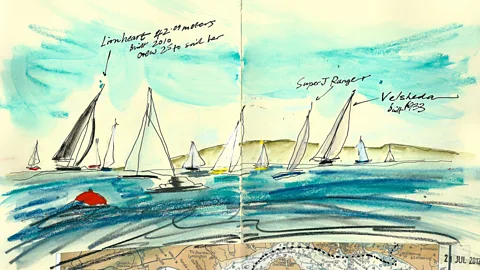 Lionheart 42.09 meters
built 2010
crew 25 to sail her
Super J Ranger
Velsheda
built 1933
JUL 2012